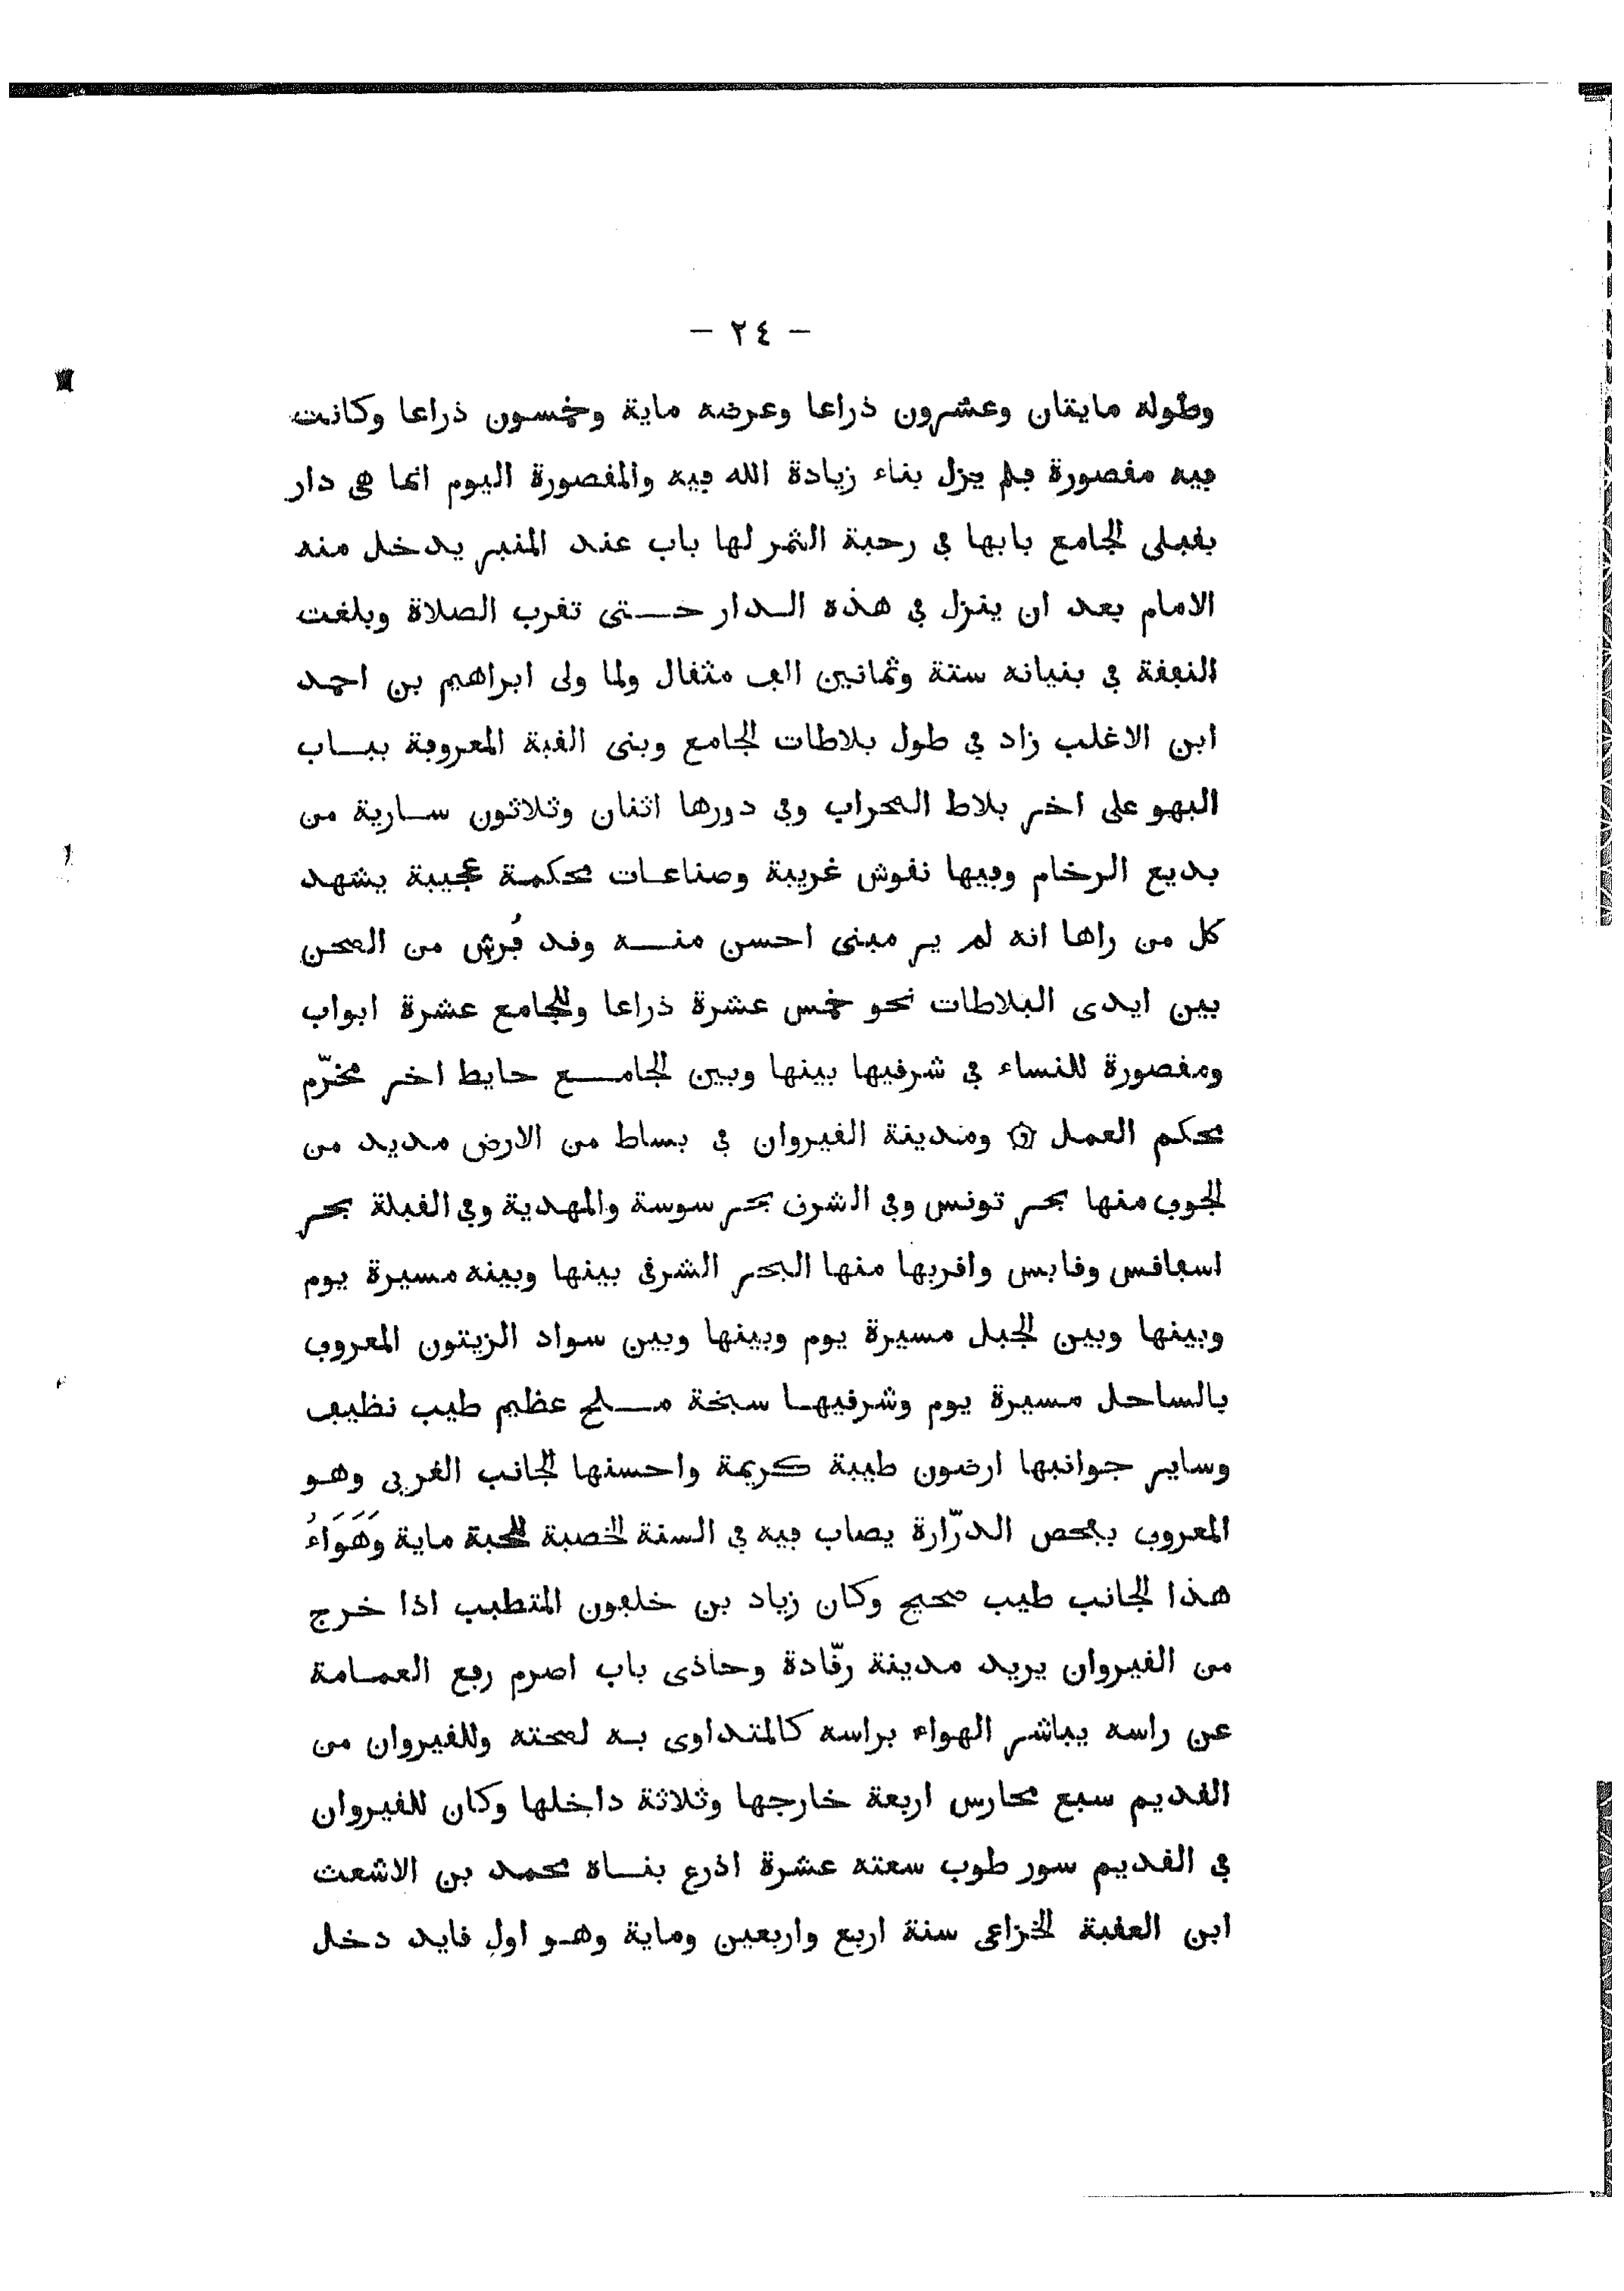 — ٢٤ —
وطوله مايتان وعشرون ذراعا وعرضه ماية وخمسون ذراعا وكانت
فيه مقصورة فلم يزل بناء زيادة الله فيه والمقصورة اليوم انما هى دار
بقبلى الجامع بابها فى رحبة التمر لها باب عند المنبر يدخل منه
الامام بعد ان ينزل فى هذه الدار حتى تقرب الصلاة وبلغت
النفقة فى بنيانه ستة وثمانين الف مثقال ولما ولى ابراهيم بن احمد
ابن الاغلب زاد فى طول بلاطات الجامع وبنى القبة المعروفة بباب
البهو على اخر بلاط المحراب وفى دورها اثنان وثلاثون سارية من
بديع الرخام وفيها نقوش غريبة وصناعات محكمة عجيبة يشهد
كل من راها انه لم ير مبنى احسن منه وقد فُرش من الصحن
بين ايدى البلاطات نحو خمس عشرة ذراعا وللجامع عشرة ابواب
ومقصورة للنساء فى شرقيها بينها وبين الجامع حايط اخر مخرّم
محكم العمل ۞ ومدينة القيروان فى بساط من الارض مديد من
الجوف منها بحر تونس وفى الشرق بحر سوسة والمهدية وفى القبلة بحر
اسفاقس وقابس واقربها منها البحر الشرقى بينها وبينه مسيرة يوم
وبينها وبين الجبل مسيرة يوم وبينها وبين سواد الزيتون المعروف
بالساحل مسيرة يوم وشرقيها سبخة ملح عظيم طيب نظيف
وساير جوانبها ارضون طيبة كريمة واحسنها الجانب الغربى وهو
المعروف بفحص الدرّارة يصاب فيه فى السنة الخصبة للحبة ماية وَهَوَاءُ
هذا الجانب طيب صحيح وكان زياد بن خلفون المتطبب اذا خرج
من القيروان يريد مدينة رقّادة وحاذى باب اصرم رفع العمامة
عن راسه يباشر الهواء براسه كالمتداوى به لصحته وللقيروان من
القديم سبع محارس اربعة خارجها وثلاثة داخلها وكان للقيروان
فى القديم سور طوب سعته عشرة اذرع بناه محمد بن الاشعث
ابن العقبة الخزاعى سنة اربع واربعين وماية وهو اول قايد دخل